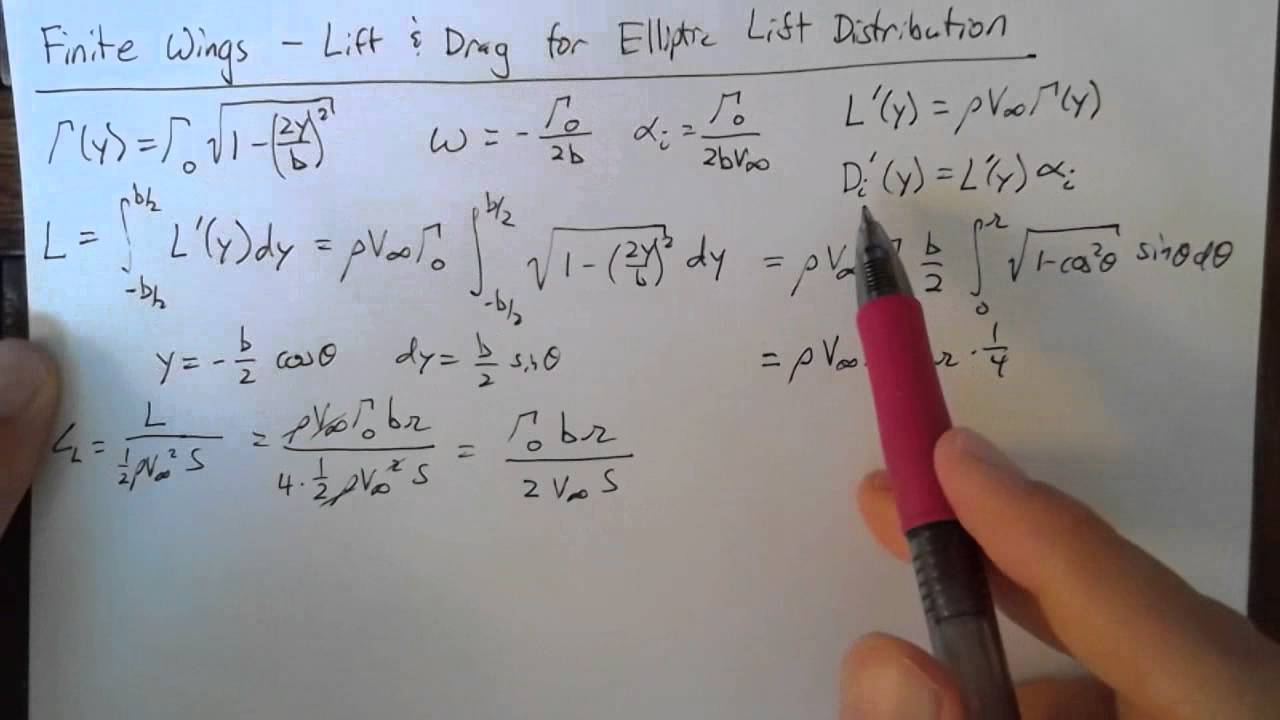 Finite Wings - Lift & Drag for Elliptic Lift Distribution
Γ(y) = Γ₀ √(1-(2y/b)²)    w = - Γ₀/2b    αᵢ = Γ₀/2bV∞    L'(y) = ρV∞Γ(y)
Dᵢ'(y) = L'(y) αᵢ
L = ∫_{-b/2}^{b/2} L'(y)dy = ρV∞Γ₀ ∫_{-b/2}^{b/2} √(1-(2y/b)²) dy = ρV∞ b/2 ∫₀^π √(1-cos²θ) sinθdθ
y = - b/2 cosθ    dy = b/2 sinθ    = ρV∞ π · 1/4
C_L = L / (1/2 ρV∞² S) = ρV∞Γ₀bπ / (4·1/2 ρV∞² S) = Γ₀bπ / (2V∞ S)